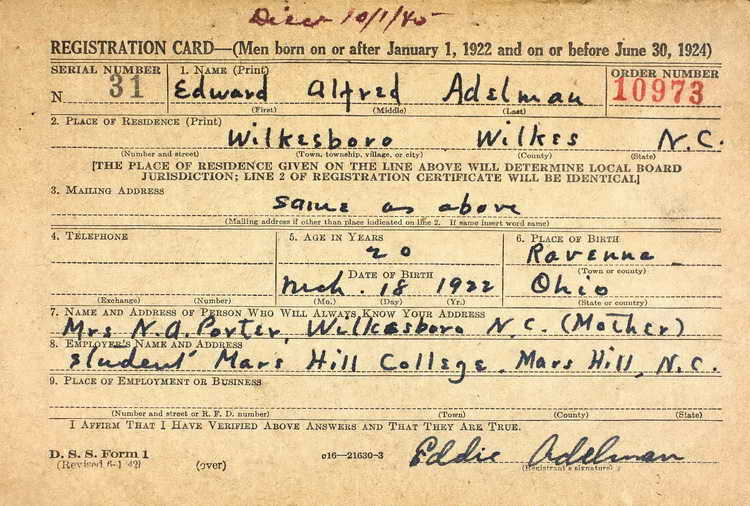 Disc 10/1/45
REGISTRATION CARD—(Men born on or after January 1, 1922 and on or before June 30, 1924)
SERIAL NUMBER 1. NAME (Print) ORDER NUMBER
N 31 Edward Alfred Adelman 10973
(First) (Middle) (Last)
2. PLACE OF RESIDENCE (Print)
Wilkesboro Wilkes N.C.
(Number and street) (Town, township, village, or city) (County) (State)
[THE PLACE OF RESIDENCE GIVEN ON THE LINE ABOVE WILL DETERMINE LOCAL BOARD
JURISDICTION; LINE 2 OF REGISTRATION CERTIFICATE WILL BE IDENTICAL]
3. MAILING ADDRESS
Same as above
(Mailing address if other than place indicated on line 2. If same insert word same)
4. TELEPHONE 5. AGE IN YEARS 6. PLACE OF BIRTH
20 Ravenna
(Town or county)
DATE OF BIRTH
Mch. 18 1922 Ohio
(Exchange) (Number) (Mo.) (Day) (Yr.) (State or country)
7. NAME AND ADDRESS OF PERSON WHO WILL ALWAYS KNOW YOUR ADDRESS
Mrs N.A. Porter, Wilkesboro N.C. (Mother)
8. EMPLOYER'S NAME AND ADDRESS
Student Mars Hill College, Mars Hill, N.C.
9. PLACE OF EMPLOYMENT OR BUSINESS
(Number and street or R. F. D. number) (Town) (County) (State)
I AFFIRM THAT I HAVE VERIFIED ABOVE ANSWERS AND THAT THEY ARE TRUE.
D. S. S. Form 1
(Revised 6-1-42) (over) c16-21630-3 Eddie Adelman
(Registrant's signature)